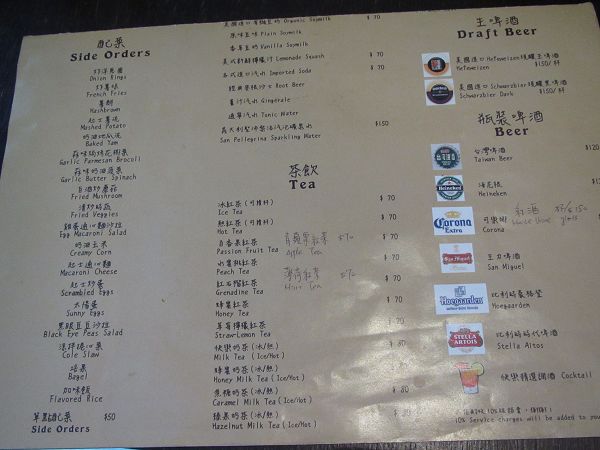 配菜
Side Orders
炸洋蔥圈
Onion Rings
炸薯條
French Fries
薯餅
Hashbrown
起士薯泥
Mashed Potato
奶油地瓜泥
Baked Yam
Garlic Parmesan Brocoli
蒜味奶油菠菜
Garlic Butter Spinach
Fried Mushroom
清炒時蔬
Fried Veggies
雞蛋通心麵沙拉
Egg Macaroni Salad
奶油玉米
Creamy Corn
起士通心麵
Macaroni Cheese
起士炒蛋
Scrambled Eggs
太陽蛋
Sunny Eggs
黑眼豆豆沙拉
Black Eye Peas Salad
涼拌捲心菜
Cole Slaw
培果
Bagel
加味飯
Flavored Rice
單點配菜 $50
Side Orders
美國進口有機豆奶 Organic Soymilk $ 70
原味豆奶 Plain Soymilk
香草豆奶 Vanilla Soymilk
美式新鮮檸檬汁 Lemonade Squash $ 70
各式進口汽水 Imported Soda $ 70
經典麥根沙士 Root Beer
薑汁汽水 Gingerale
通寧汽水 Tonic Water
San Pellegrina Sparkling Water $150
茶飲
Tea
冰紅茶(可續杯) $ 70
Ice Tea
熱紅茶(可續杯) $ 70
Hot Tea
百香果紅茶 青蘋果紅茶 $70 $ 70
Passion Fruit Tea Apple Tea
水蜜桃紅茶 薄荷紅茶 $70 $ 70
Peach Tea Mint Tea
紅石榴紅茶 $ 70
Grenadine Tea
蜂蜜紅茶 $ 70
Honey Tea
草莓檸檬紅茶 $ 70
Straw-Lemon Tea
快樂奶茶(冰/熱) $ 70
Milk Tea (Ice/Hot)
蜂蜜奶茶(冰/熱) $ 80
Honey Milk Tea (Ice/Hot)
焦糖奶茶(冰/熱) $ 80
Caramel Milk Tea (Ice/Hot)
榛果奶茶(冰/熱) $ 80
Hazelnut Milk Tea (Ice/Hot)
生啤酒
Draft Beer
Hefeweizen $150/杯
美國進口Schwarzbier現釀黑啤酒
Schwarzbier Dark $150/杯
瓶裝啤酒
Beer
台灣啤酒 $120
Taiwan Beer
Heineken
海尼根
Heineken
Corona
Extra
可樂娜 紅酒 杯/$150
Corona glass
San Miguel
生力啤酒
San Miguel
Hoegaarden
比利時豪格登
Hoegaarden
STELLA
ARTOIS
比利時時代啤酒
Stella Altos
快樂精選調酒 Cocktail
10% Service charges will be added to you